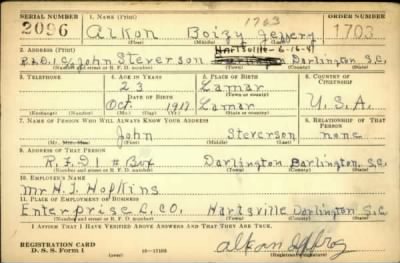 SERIAL NUMBER 1. NAME (Print) ORDER NUMBER
1703
2096 Alkon Boizy Jeffery 1703
(First) (Middle) (Last)
Hartsville - 6-16-41
2. ADDRESS (Print)
John Steverson Darlington S.C.
(Number and street or R. F. D. number) (Town) (County) (State)
3. TELEPHONE 4. AGE IN YEARS 5. PLACE OF BIRTH 6. COUNTRY OF CITIZENSHIP
23 Lamar
DATE OF BIRTH (Town or county)
Oct. 1917 Lamar U.S.A.
(Exchange) (Number) (Mo.) (Day) (Yr.) (State or country)
7. NAME OF PERSON WHO WILL ALWAYS KNOW YOUR ADDRESS 8. RELATIONSHIP OF THAT PERSON
John Steverson none
(Mr., Mrs., Miss) (First) (Middle) (Last)
9. ADDRESS OF THAT PERSON
R.F.D 1 # Box Darlington Darlington, S.C.
(Number and street or R. F. D. number) (Town) (County) (State)
10. EMPLOYER'S NAME
Mr H. J. Hopkins
11. PLACE OF EMPLOYMENT OR BUSINESS
Enterprize L. CO. Hartsville Darlington S.C.
(Number and street or R. F. D. number) (Town) (County) (State)
I AFFIRM THAT I HAVE VERIFIED ABOVE ANSWERS AND THAT THEY ARE TRUE.
REGISTRATION CARD
D. S. S. Form 1
(Registrant's signature)